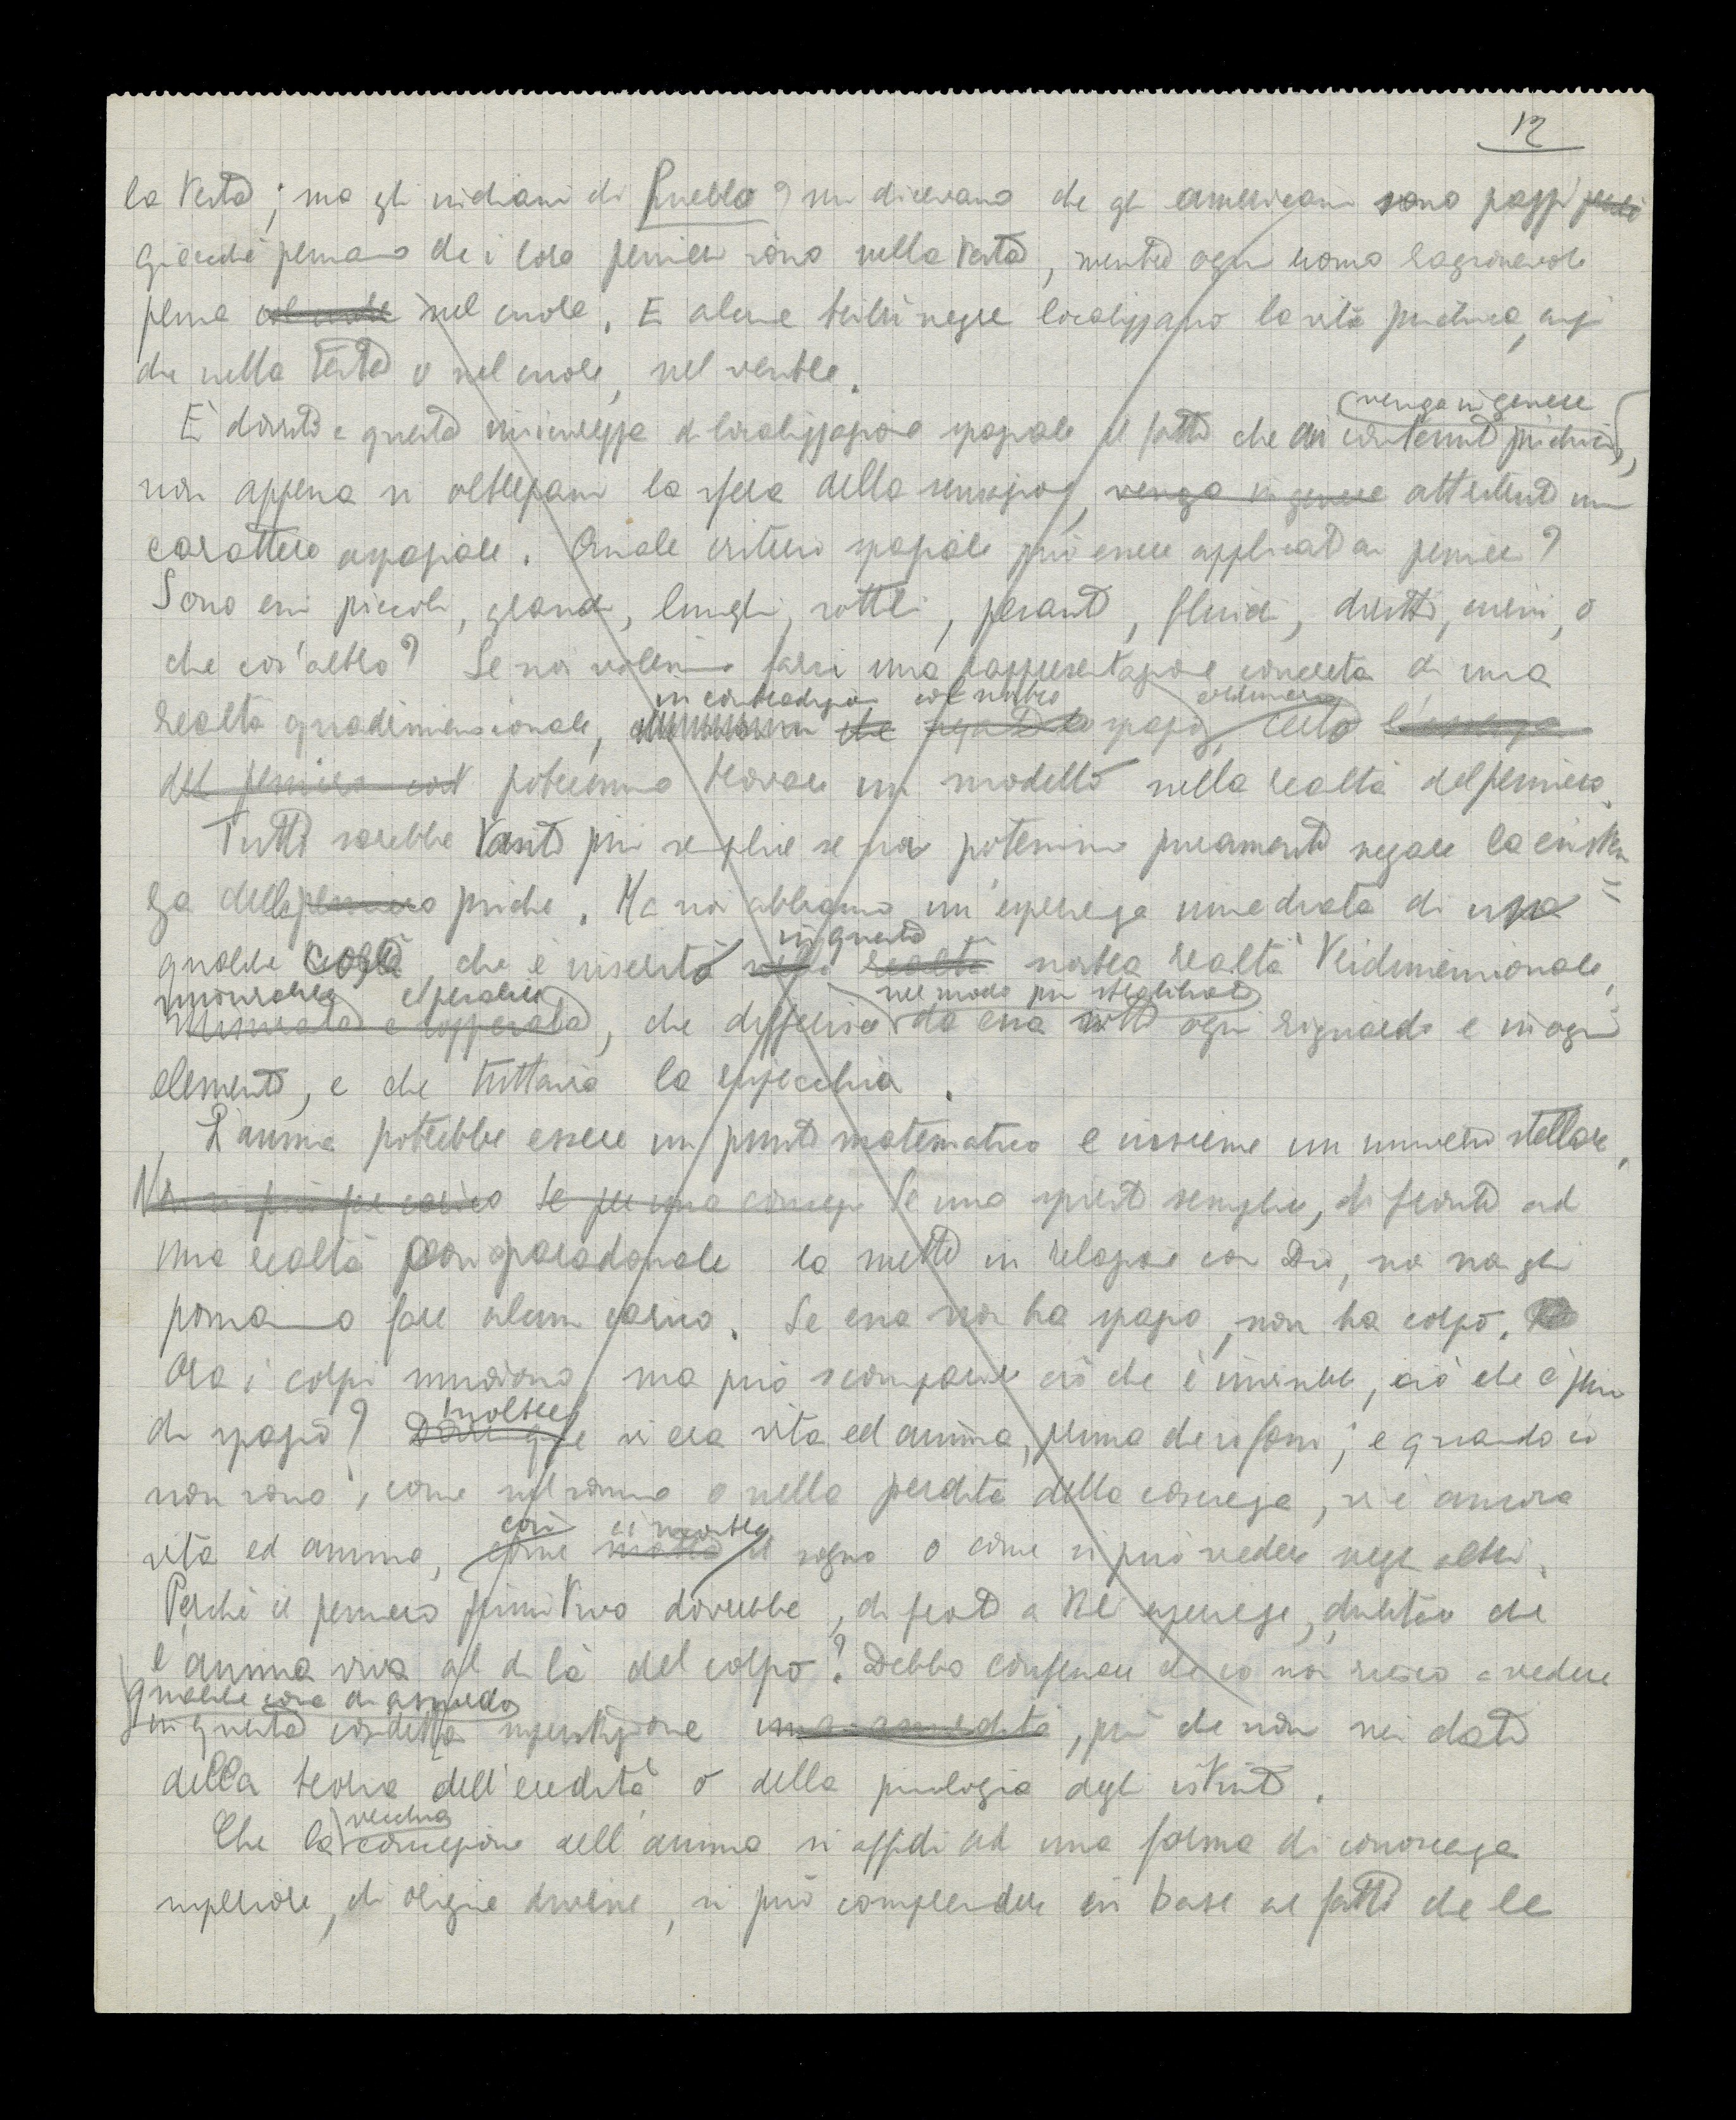 12
la testa; ma gli indiani di Pueblo ? mi dicevano che gli americani sono pazzi perché
giacché pensano che i loro pensieri sono nella testa, mentre ogni uomo ragionevole
pensa col cuore nel cuore. E alcune tribù negre localizzano la vita psichica, anzi
che nella testa o nel cuore, nel ventre.
venga in genere
È dovuto a questa insicurezza di localizzazione spaziale il fatto che ai contenuti psichici,
non appena si oltrepassi la sfera della sensazione, venga in genere attribuito un
carattere aspaziale. Quale criterio spaziale può essere applicato ai pensieri?
Sono essi piccoli, grandi, lunghi, sottili, pesanti, fluidi, diritti, curvi, o
che cos'altro? Se noi volessimo farci una rappresentazione concreta di una
in contradizione col nostro ordinario
realtà quadimensionale, che spazio, certo l'essenza
del pensiero così potremmo trovare un modello nella realtà del pensiero.
Tutto sarebbe tanto più semplice se noi potessimo puramente negare la esisten=
za della pensiero psiche. Ma noi abbiamo un'esperienza immediata di una
in questa
qualche realtà, che è inserita nella realtà nostra realtà tridimensionale,
misurabile e operabile nel modo più stupefacente
misurata e sopperata, che differisce da essa sotto ogni riguardo e in ogni
elemento, e che tuttavia la rispecchia.
L'anima potrebbe essere un punto matematico e insieme un universo stellare.
Non si può far carico se per una concezi Se uno spirito semplice, di fronte ad
una realtà così paradossale la mette in relazione con Dio, noi non gli
possiamo fare alcun carico. Se essa non ha spazio, non ha corpo.
Ora i corpi muoiono, ma può scomparire ciò che è invisibile, ciò che è privo
inoltre
di spazio? vi era vita ed anima, prima che io fossi; e quando io
non sono, come nel sonno o nella perdita della coscienza, vi è ancora
così ci mostra
vita ed anima, come mostra il sogno o come si può vedere negli altri.
Perché il pensiero primitivo dovrebbe, di fronte a tali esperienze, dubitare che
l'anima viva al di là del corpo? Debbo confessare che io non riesco a vedere
qualche cosa di assurdo
in questa cosidetta superstizione una assurdità, più che non nei dati
della teoria dell'eredità o della psicologia degli istinti.
vecchia
Che la concezione dell'anima si affidi ad una forma di conoscenza
superiore, di origine divina, si può comprendere in base al fatto che le